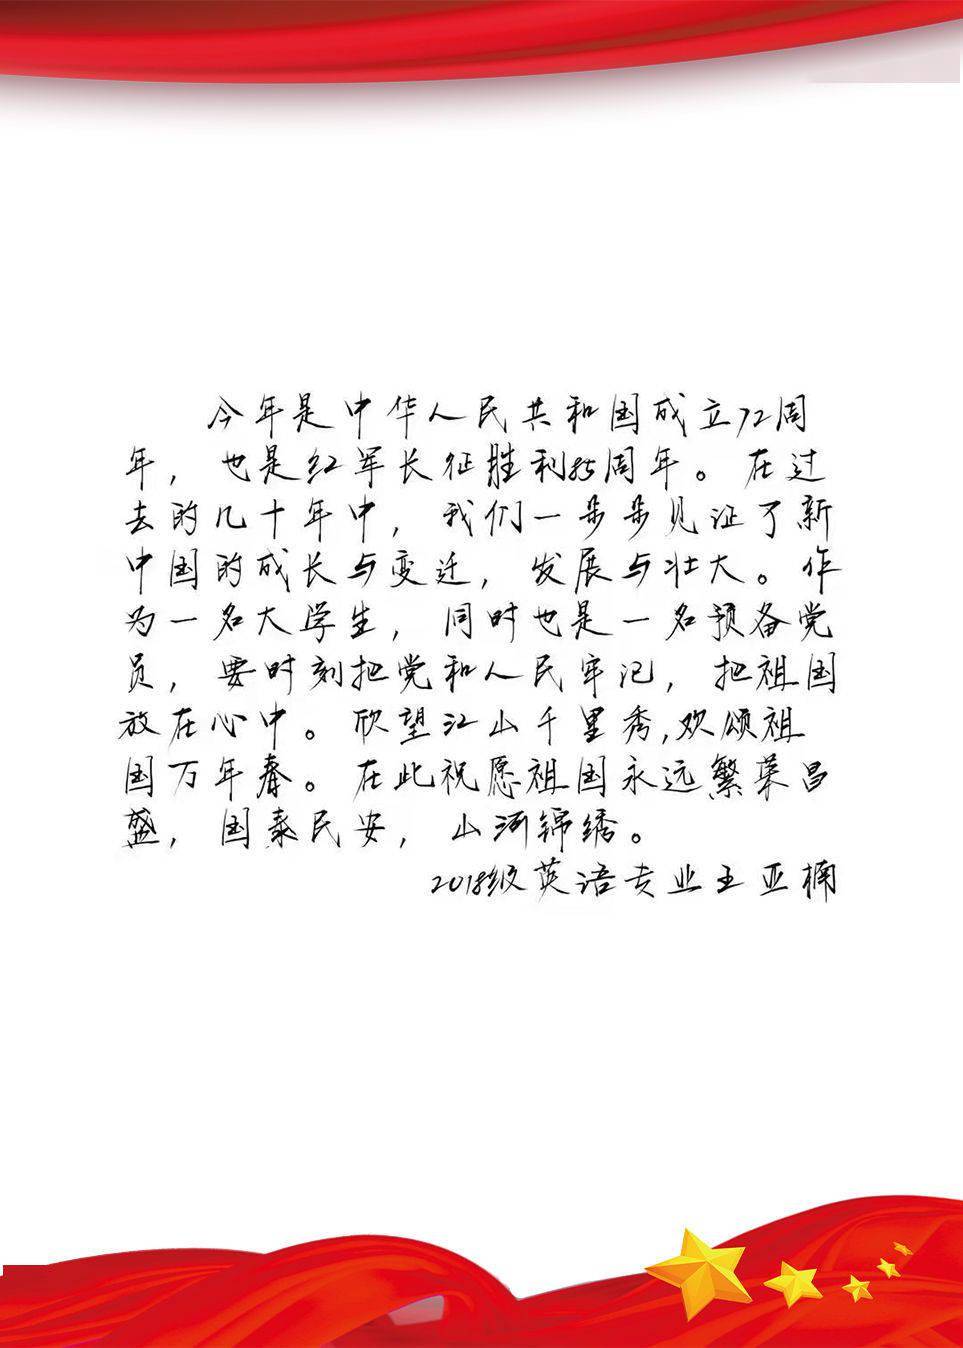 今年是中华人民共和国成立72周
年，也是红军长征胜利85周年。在过
去的几十年中，我们一步步见证了新
中国的成长与变迁，发展与壮大。作
为一名大学生，同时也是一名预备党
员，要时刻把党和人民牢记，把祖国
放在心中。欣望江山千里秀,欢颂祖
国万年春。在此祝愿祖国永远繁荣昌
盛，国泰民安，山河锦绣。
2018级英语专业王亚楠